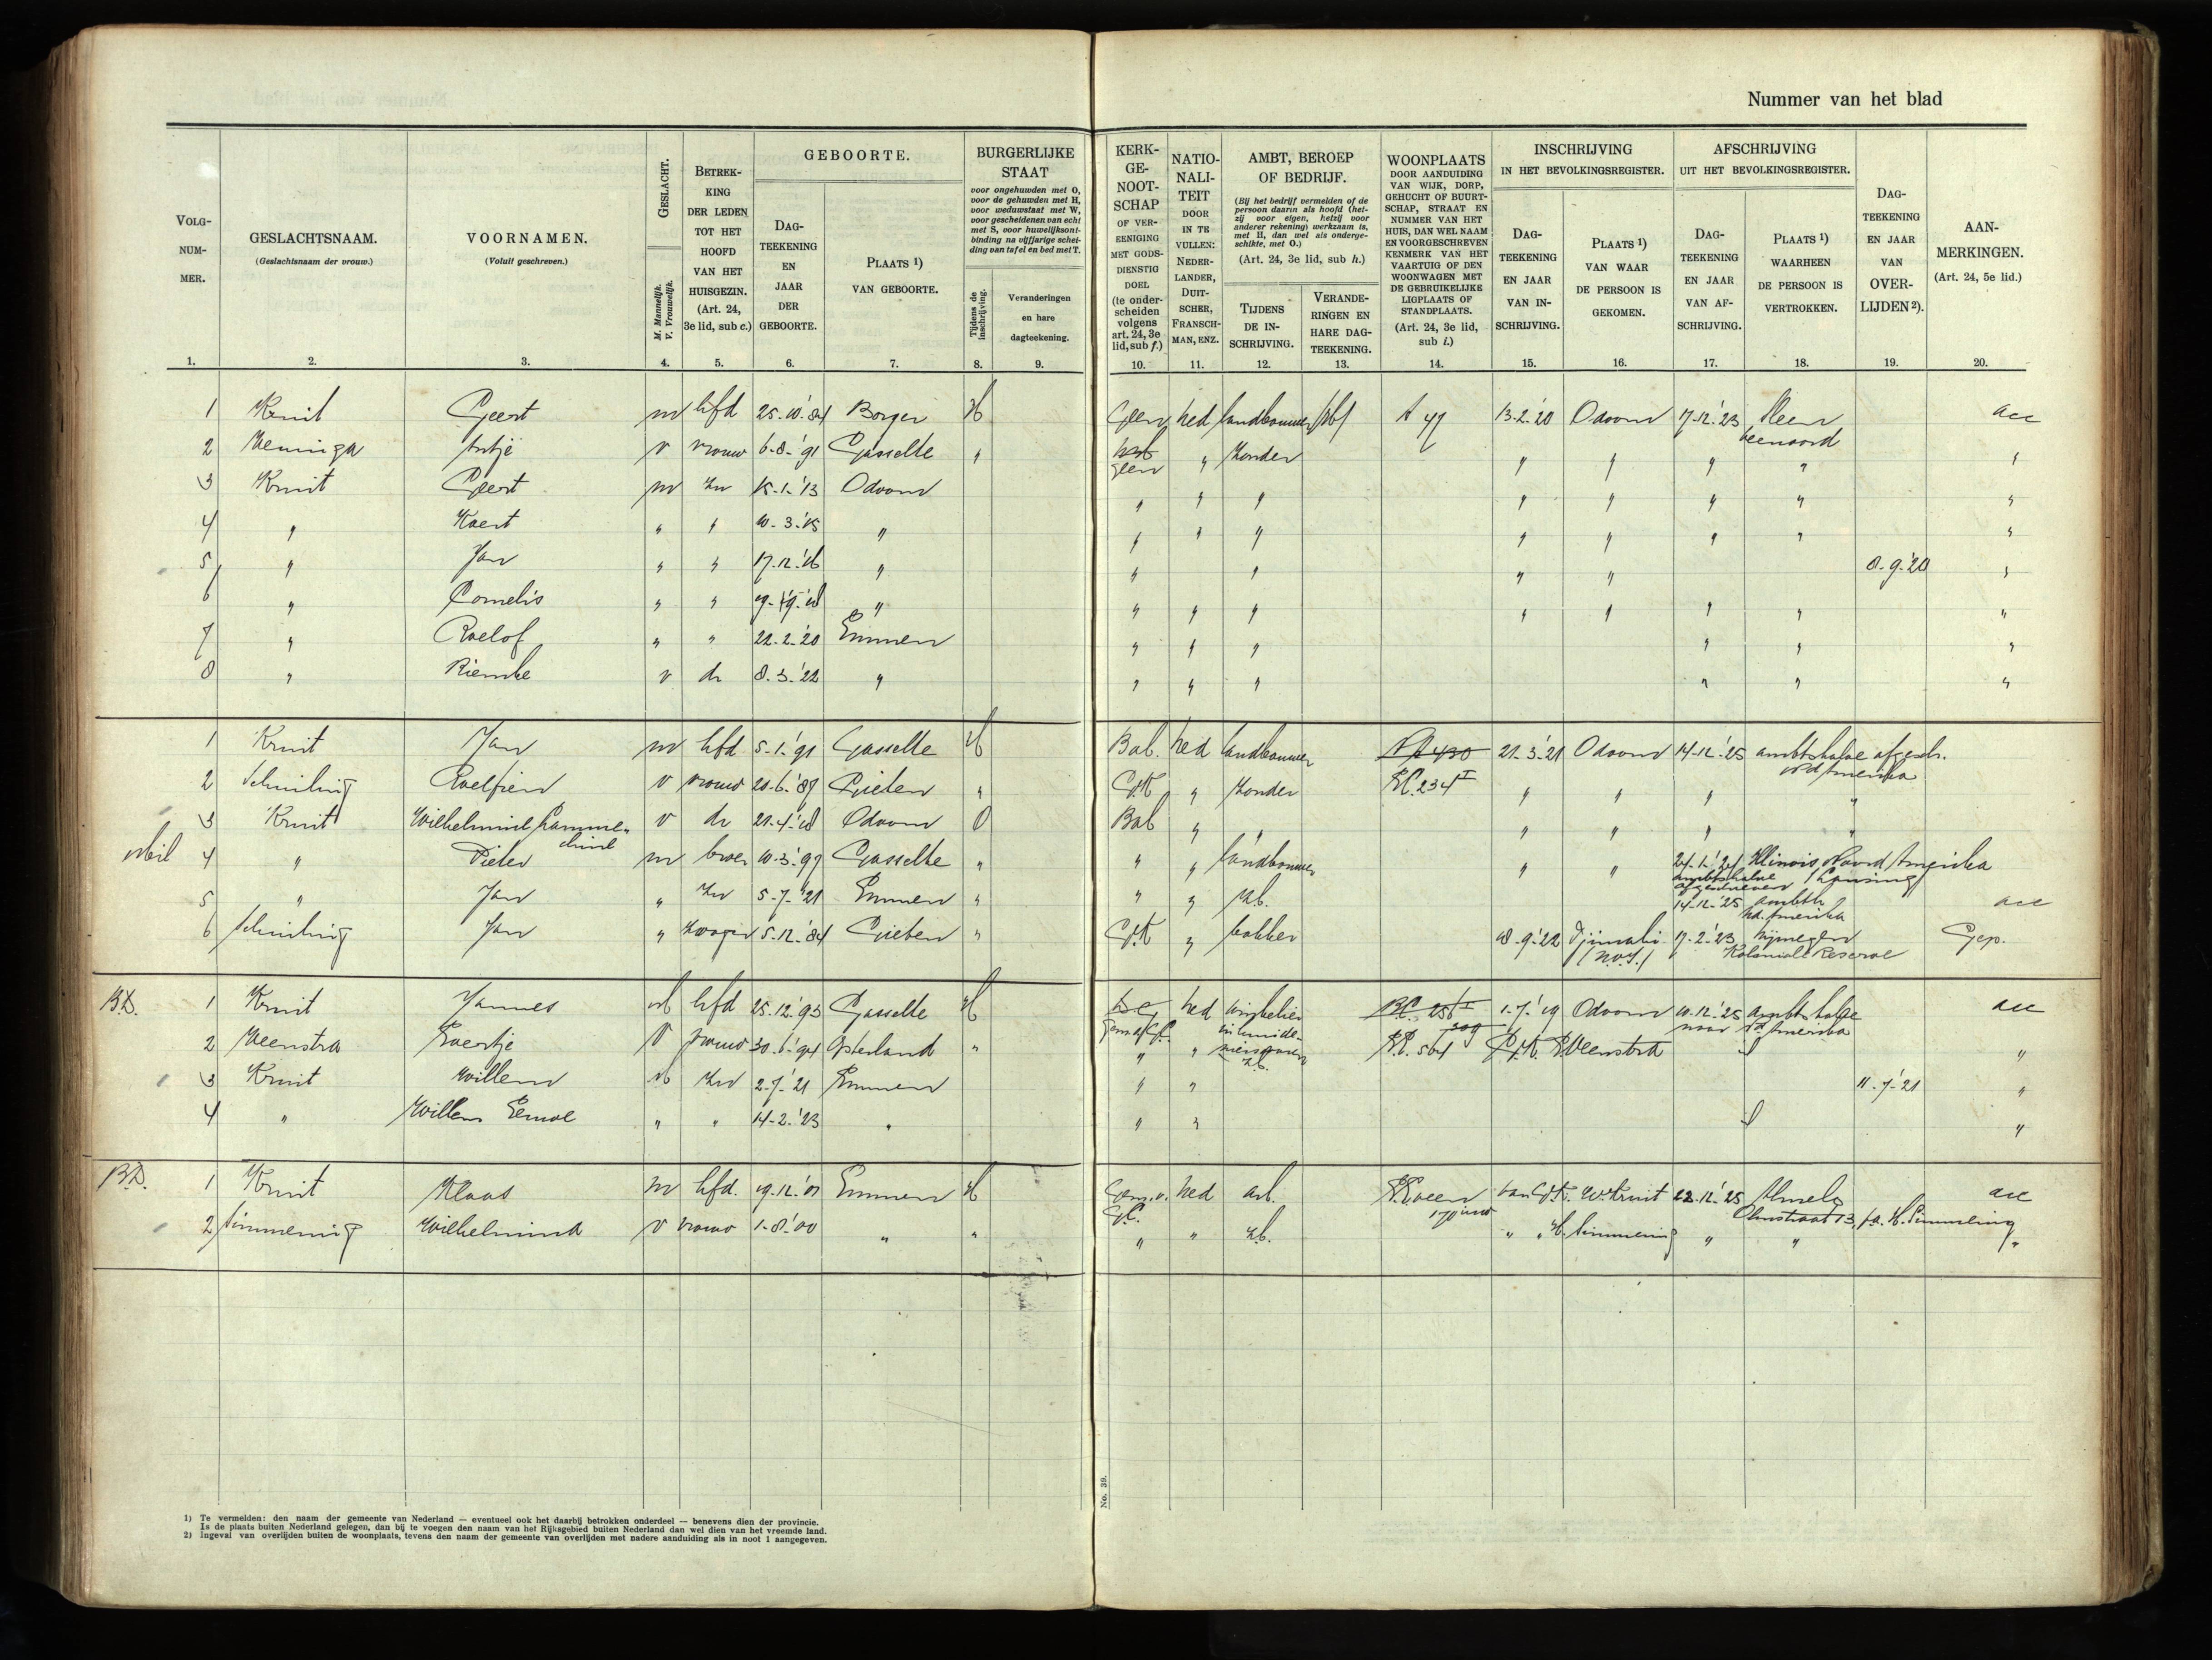 Nummer van het blad
VOLG-
NUM-
MER.
GESLACHTSNAAM.
(Geslachtsnaam der vrouw.)
VOORNAMEN.
(Voluit geschreven.)
GESLACHT.
M. Mannelijk.
V. Vrouwelijk.
BETREK-
KING
DER LEDEN
TOT HET
HOOFD
VAN HET
HUISGEZIN.
(Art. 24,
3e lid, sub c.)
GEBOORTE.
DAG-
TEEKENING
EN
JAAR
DER
GEBOORTE.
PLAATS 1)
VAN GEBOORTE.
BURGERLIJKE
STAAT
voor ongehuwden met O,
voor de gehuwden met H,
voor weduwstaat met W,
voor gescheidenen van echt
met S, voor huwelijksont-
binding na vijfjarige schei-
ding van tafel en bed met T.
Tijdens de
inschrijving.
Veranderingen
en hare
dagteekening.
KERK-
GE-
NOOT-
SCHAP
OF VER-
EENIGING
MET GODS-
DIENSTIG
DOEL
(te onder-
scheiden
volgens
art. 24, 3e
lid, sub f.)
NATIO-
NALI-
TEIT
DOOR
IN TE
VULLEN:
NEDER-
LANDER,
DUIT-
SCHER,
FRANSCH-
MAN, ENZ.
AMBT, BEROEP
OF BEDRIJF.
(Bij het bedrijf vermelden of de
persoon daarin als hoofd (het-
zij voor eigen, hetzij voor
anderer rekening) werkzaam is,
met H, dan wel als onderge-
schikte, met O.)
(Art. 24, 3e lid, sub h.)
TIJDENS
DE IN-
SCHRIJVING.
VERANDE-
RINGEN EN
HARE DAG-
TEEKENING.
WOONPLAATS
DOOR AANDUIDING
VAN WIJK, DORP,
GEHUCHT OF BUURT-
SCHAP, STRAAT EN
NUMMER VAN HET
HUIS, DAN WEL NAAM
EN VOORGESCHREVEN
KENMERK VAN HET
VAARTUIG OF DEN
WOONWAGEN MET
DE GEBRUIKELIJKE
LIGPLAATS OF
STANDPLAATS.
(Art. 24, 3e lid,
sub i.)
INSCHRIJVING
IN HET BEVOLKINGSREGISTER.
DAG-
TEEKENING
EN JAAR
VAN IN-
SCHRIJVING.
PLAATS 1)
VAN WAAR
DE PERSOON IS
GEKOMEN.
AFSCHRIJVING
UIT HET BEVOLKINGSREGISTER.
DAG-
TEEKENING
EN JAAR
VAN AF-
SCHRIJVING.
PLAATS 1)
WAARHEEN
DE PERSOON IS
VERTROKKEN.
DAG-
TEEKENING
EN JAAR
VAN
OVER-
LIJDEN 2).
AAN-
MERKINGEN.
(Art. 24, 5e lid.)
1. 2. 3. 4. 5. 6. 7. 8. 9. 10. 11. 12. 13. 14. 15. 16. 17. 18. 19. 20.
1 Kruit Geert m hfd 25.10.'84 Borger H Geen ned landbouwer A 47 13.2.'20 Odoorn 17.12.'23 acc
2 Antje v vrouw 6-8-'91 Gasselte " geen " zonder " " " " "
3 Kruit Geert m zn 15.1.'13 Odoorn " " " " " " " "
4 " Koert " " 10.3.'15 " " " " " " " " "
5 " Jan " " 17.12.'16 " " " " " 8.9.'20 "
6 " Cornelis " " " " " " " " " " "
7 " Roelof " " 22.2.'20 Emmen " " " " " "
8 " Riemke v dr 8.3.'22 " " " " " " "
1 Kruit Jan m hfd 5-1-'91 Gasselte H Bab. ned landbouwer 21.3.'21 Odoorn 14-12-'25 ambtshalve afgesch.
Nd Amerika
2 Schuiling Roelfien v vrouw 20-6-'89 Gieten " G.K " zonder EC. 234 I " " " "
3 Kruit Wilhelmina Lamme- v dr 21.4.'18 Odoorn O Bab " " " " " "
china
4 " Pieter m broer 10.3.'97 Gasselte " " " landbouwer " " 24.1.'24 Illinois Noord Amerika
ambtshalve (Lansing)
afgeschreven
5 " Jan " zn 5-7-'21 Emmen " " " zb. 14-12-'25 ambtsh acc
nd. Amerika
6 Schuiling Jan " zwager 5.12.'84 Gieten " G.K " bakker 18.9.'22 17.2.'23 Nijmegen Gep.
(N.O.I.) Koloniale Reserve
B.D. 1 Kruit Jannes M hfd 25.12.'93 Gasselte H ned 1.7.'19 Odoorn 10.12.'25 ambtshalve acc
naar Nd Amerika
2 Veenstra Evertje V vrouw 30.6.'94 Opsterland " " " EC. 564 Veenstra "
3 Kruit Willem M zn 2.7.'21 Emmen " " 11-7-'21 "
4 " Willem " " 14-2-'23 " " " "
B.D. 1 Kruit Klaas m hfd. 19.12.'01 Emmen H ned arb. van W. Kruit 22.12.'25 Almelo acc
2 Wilhelmina v vrouw 1-8-'00 " " " " zb. " " " " "
No. 39.
1) Te vermelden: den naam der gemeente van Nederland — eventueel ook het daarbij betrokken onderdeel — benevens dien der provincie.
Is de plaats buiten Nederland gelegen, dan bij te voegen den naam van het Rijksgebied buiten Nederland dan wel dien van het vreemde land.
2) Ingeval van overlijden buiten de woonplaats, tevens den naam der gemeente van overlijden met nadere aanduiding als in noot 1 aangegeven.